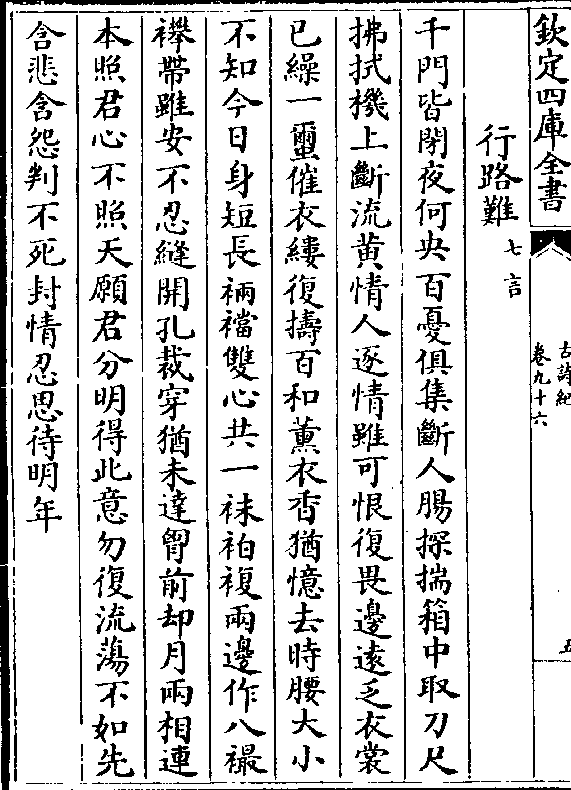 欽定四庫全書
古詩紀
卷九十六
五
行路難
七言
千門皆閉夜何央百憂俱集斷人腸探揣箱中取刀尺
拂拭機上斷流黄情人逐情雖可恨復畏邊遠乏衣裳
已繰一蠒催衣縷復擣百和薰衣香猶憶去時腰大小
不知今日身短長裲襠雙心共一袜袙複兩邊作八襊
襻帶雖安不忍縫開孔裁穿猶未達胷前却月兩相連
本照君心不照天願君分明得此意勿復流蕩不如先
含悲含怨判不死封情忍思待明年